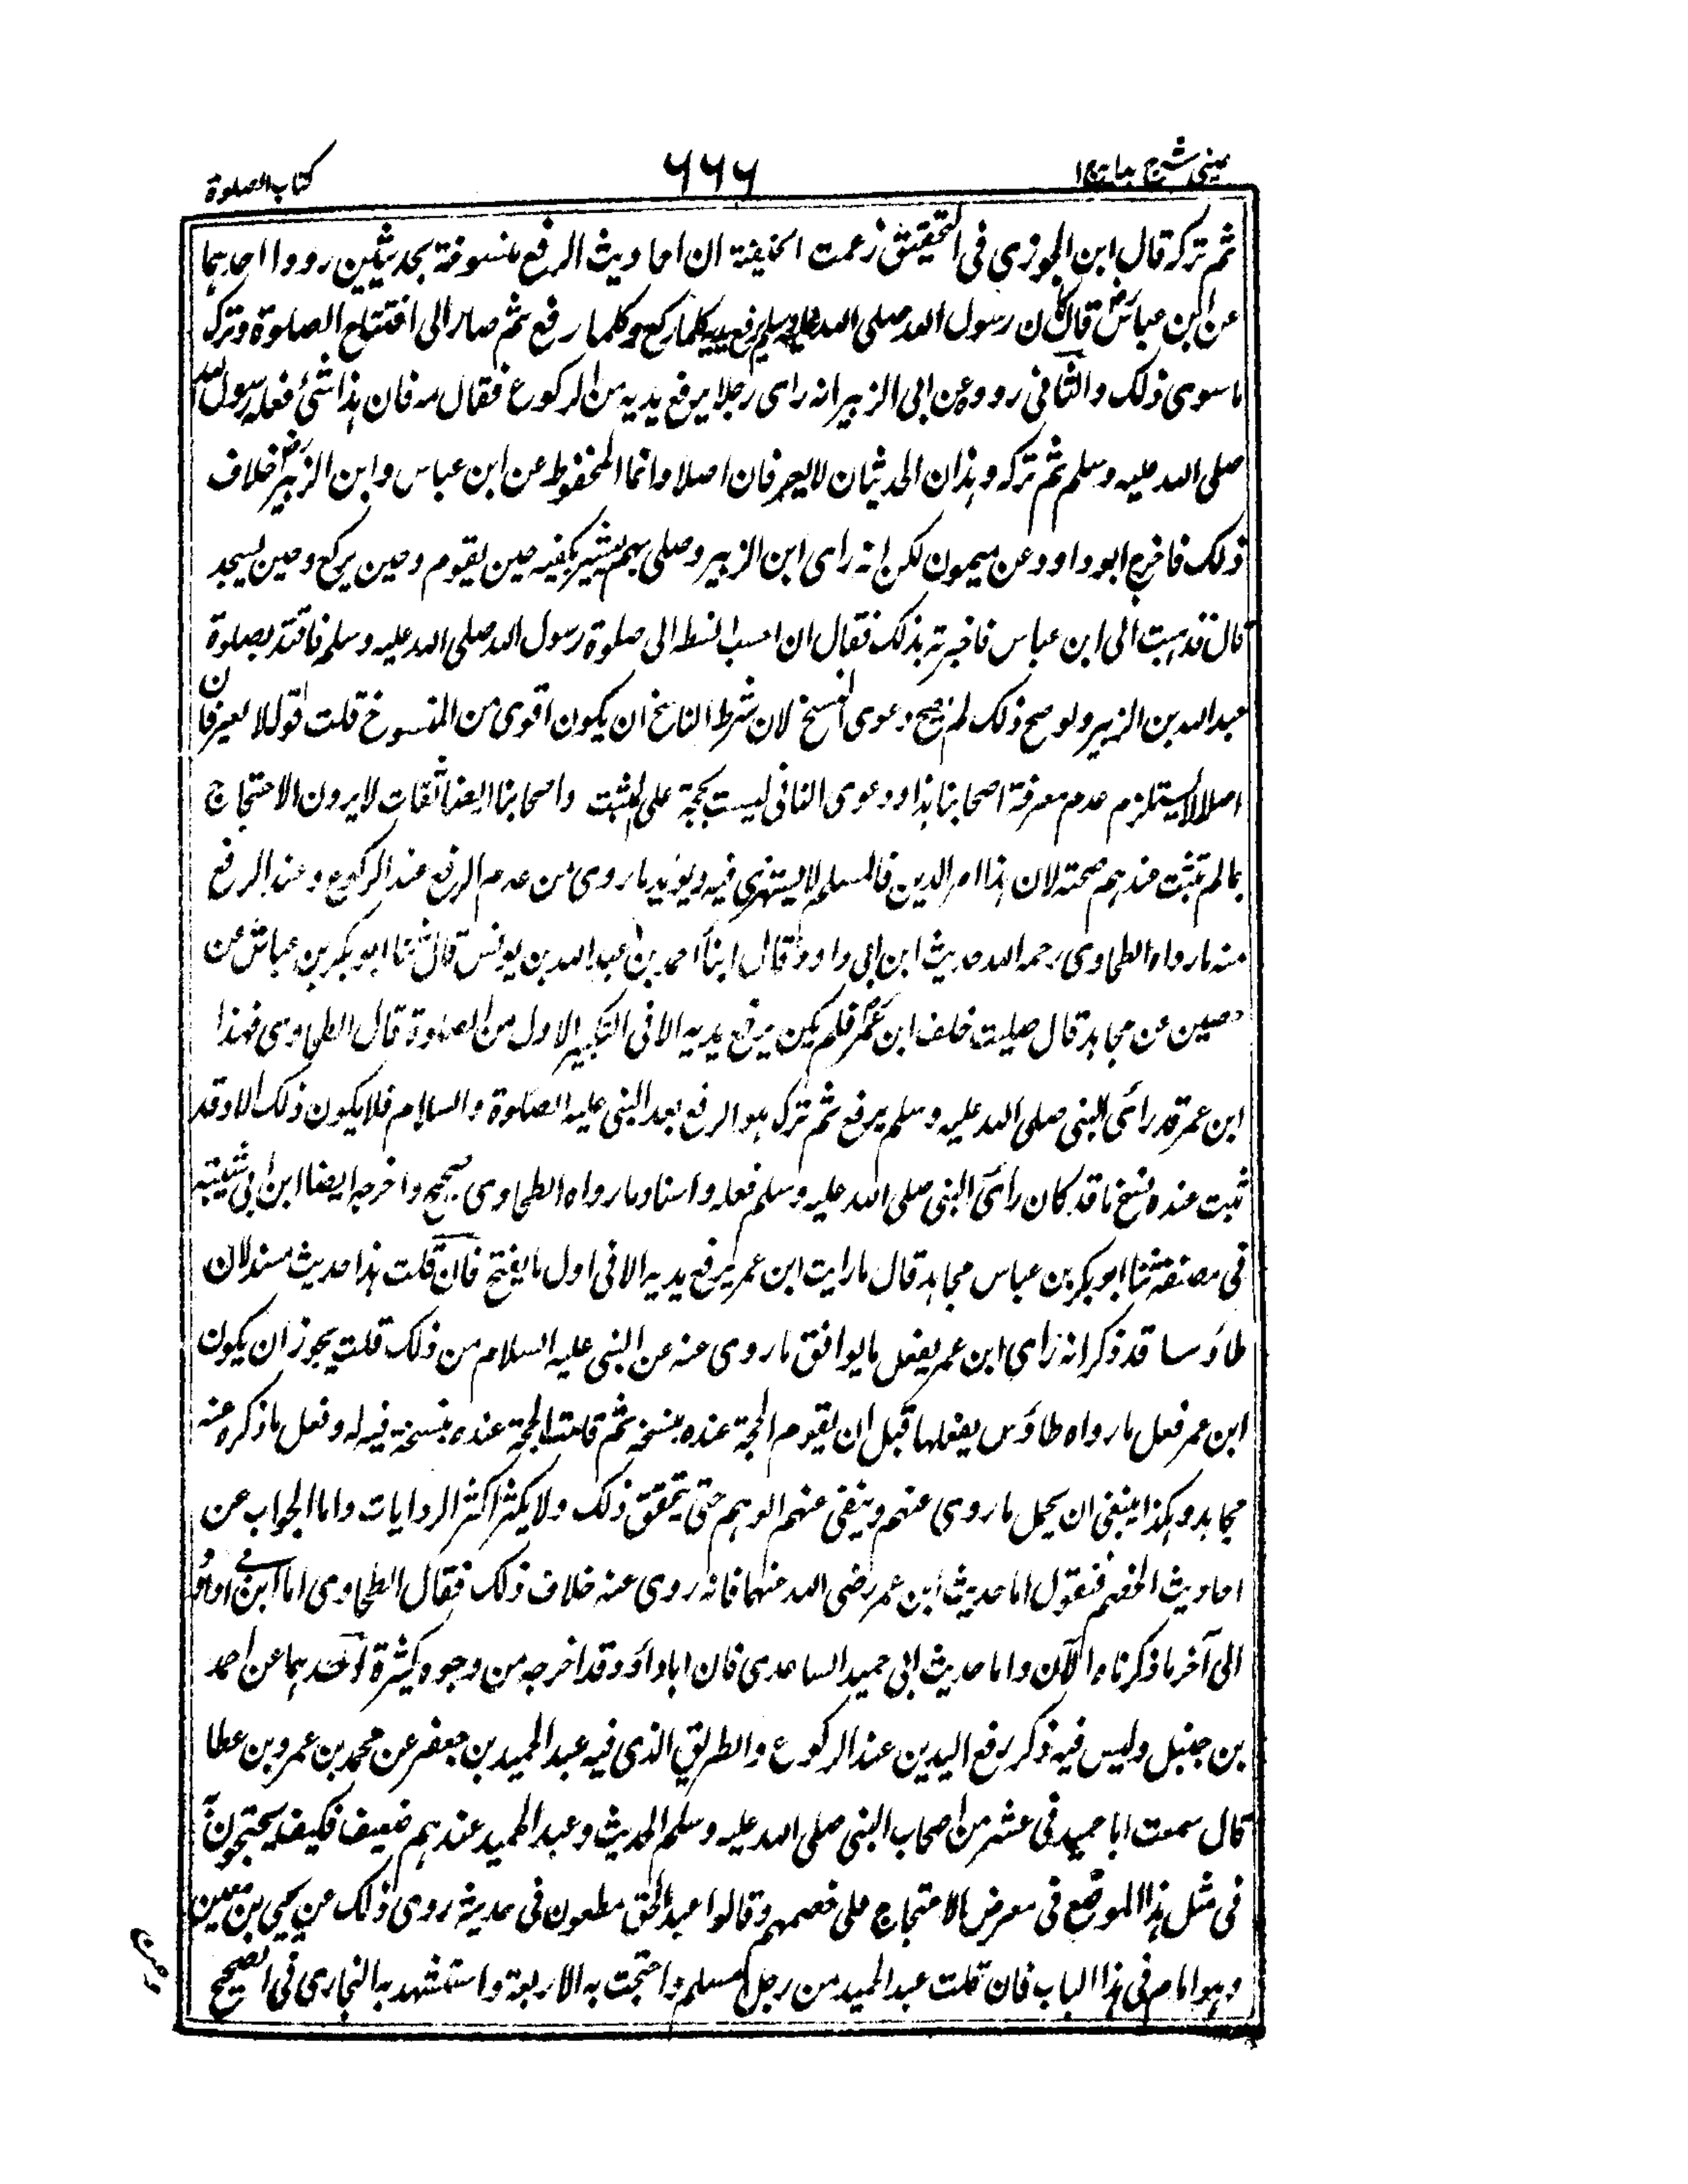 عینی شرح ہدایہ ج۱
۶۶۶
کتاب الصلوۃ
ثم ترکہ قال ابن الجوزی فی التحقیق زعمت الحنفیۃ ان احادیث الرفع منسوخۃ بحدیثین رووا احدہما
عن ابن عباس رض قال کان رسول اللہ صلی اللہ علیہ وسلم یرفع یدیہ کلما رکع وکلما رفع ثم صار الی افتتاح الصلوۃ وترک
ما سوی ذلک والثانی رووہ عن ابی الزبیر انہ رای رجلا یرفع یدیہ من الرکوع فقال مہ فان ہذا شئ فعلہ رسول اللہ
صلی اللہ علیہ وسلم ثم ترکہ وہذان الحدیثان لا یعرفان اصلا وانما المحفوظ عن ابن عباس وابن الزبیر رض خلاف
ذلک فاخرج ابو داود عن میمون لکن انہ رای ابن الزبیر وصلی بہم یشیر بکفیہ حین یقوم وحین یرکع وحین یسجد
قال فذہبت الی ابن عباس فاخبرتہ بذلک فقال ان احبب النظر الی صلوۃ رسول اللہ صلی اللہ علیہ وسلم فاقتد بصلوۃ
عبد اللہ بن الزبیر ولو صح ذلک لم یصح دعوی النسخ لان شرط الناسخ ان یکون اقوی من المنسوخ قلت قولہ لا یعرفان
اصلا لا یستلزم عدم معرفۃ اصحابنا ہذا ودعوی النافی لیست بحجۃ علی المثبت واصحابنا ایضا ثقات لا یرون الاحتجاج
بما لم تثبت عندہم صحتہ لان ہذا امر الدین فالمسلم لا یستہزی فیہ ویؤید ما روی من عدم الرفع عند الرکوع وعند الرفع
منہ ما رواہ الطحاوی رحمہ اللہ حدیث ابن ابی داود قال ابنا احمد بن عبد اللہ بن یونس قال ثنا ابو بکر بن عیاش عن
حصین عن مجاہد قال صلیت خلف ابن عمر فلم یکن یرفع یدیہ الا فی التکبیر الاول من الصلوۃ قال الطحاوی فہذا
ابن عمر قد رائ النبی صلی اللہ علیہ وسلم یرفع ثم ترک ہو الرفع بعد النبی علیہ الصلوۃ والسلام فلا یکون ذلک الا وقد
ثبت عندہ نسخ ما قد کان رائ النبی صلی اللہ علیہ وسلم فعلہ واسناد ما رواہ الطحاوی صحیح واخرجہ ایضا ابن ابی شیبۃ
فی مصنفہ ثنا ابو بکر بن عیاس مجاہد قال ما رایت ابن عمر یرفع یدیہ الا فی اول ما یفتح فان قلت ہذا حدیث مسند لان
طاؤسا قد ذکر انہ رای ابن عمر یفعل ما یوافق ما روی عنہ عن النبی علیہ السلام من ذلک قلت یجوز ان یکون
ابن عمر فعل ما رواہ طاؤس یفعلہا قبل ان یقوم الحجۃ عندہ بنسخہ ثم قامت الحجۃ عندہ بنسخۃ فیہ لہ وفعل ما ذکرہ عنہ
مجاہد وہکذا ینبغی ان یحمل ما روی عنہم وینفی عنہم الوہم حتی یتحقق ذلک ولا یکثر اکثر الروایات واما الجواب عن
احادیث الخصم فنقول اما حدیث ابن عمر رضی اللہ عنہما فانہ روی عنہ خلاف ذلک فقال الطحاوی اما ابن ابی داؤد
الی آخر ما ذکرناہ الآن واما حدیث ابی حمید الساعدی فان ابا داؤد قد اخرجہ من وجوہ کثیرۃ احدہما عن احمد
بن حنبل ولیس فیہ ذکر رفع الیدین عند الرکوع والطریق الذی فیہ عبد الحمید بن جعفر عن محمد بن عمرو بن عطا
قال سمعت ابا حمید فی عشر من اصحاب النبی صلی اللہ علیہ وسلم الحدیث وعبد الحمید عندہم ضعیف فکیف یحتجون بہ
فی مثل ہذا الموضع فی معرض الاحتجاج علی خصمہم وقالوا عبد الحق مطعون فی حدیثہ روی ذلک عن یحیی بن معین
وہو امام فی ہذا الباب فان قلت عبد الحمید من رجل مسلم واحتجت بہ الاربعۃ واستشہد بہ البخاری فی الصحیح